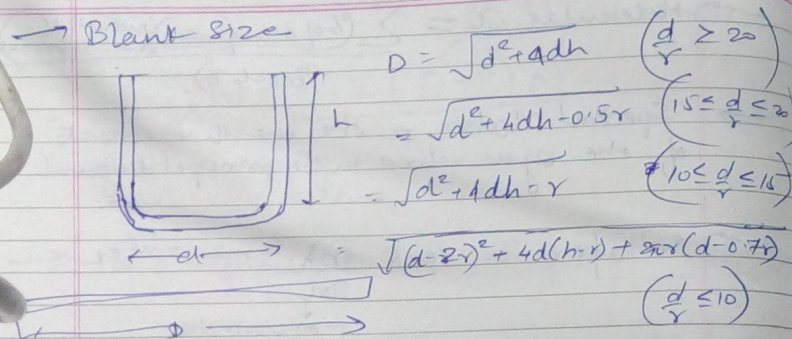 → Blank Size
D = √(d²+4dh) (d/r ≥ 20)
h
= √(d²+4dh-0.5r) (15 ≤ d/r ≤ 20)
= √(d²+4dh-r) (10 ≤ d/r ≤ 15)
d
= √((d-2r)² + 4d(h-r) + 2πr(d-0.7r))
(d/r ≤ 10)
D